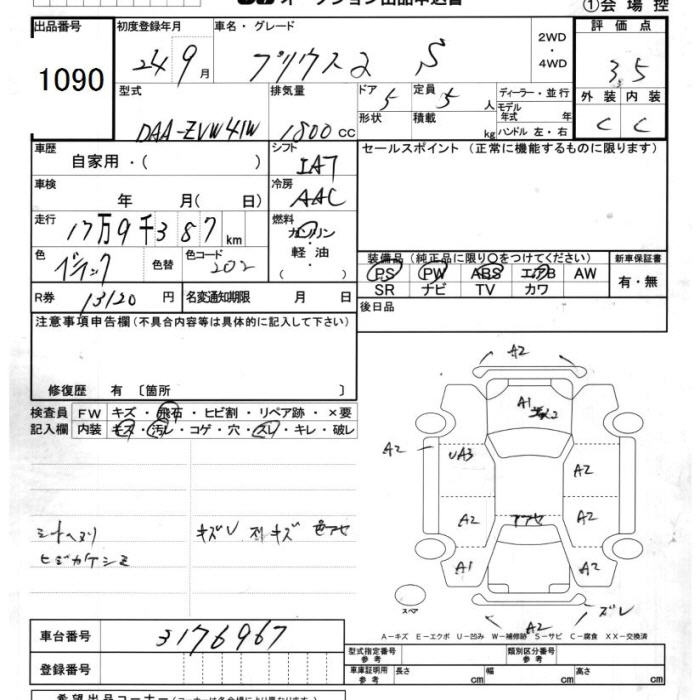 オークション出品申込書
①会場控
出品番号
1090
初度登録年月
24 9月
車名・グレード
プリウス2 S
2WD
・
4WD
評価点
3.5
外装 内装
C C
型式
DAA-ZVW41W
排気量
1800 CC
ドア 5
定員 5人
形状
積載 kg
ディーラー・並行
モデル年式 年
ハンドル 左・右
車歴
自家用・( )
シフト
IAT
セールスポイント (正常に機能するものに限ります)
車検
年 月( 日)
冷房
AAC
走行
17万9千387km
燃料
ガソリン
・
軽油
・
色
色替
色コード
202
装備品 (純正品に限り○をつけてください)
新車保証書
PS PW ABS エアB AW
SR ナビ TV カワ
有・無
R券 13120円
名変通知期限 月 日
後日品
注意事項申告欄(不具合内容等は具体的に記入して下さい)
修復歴 有 〔箇所 〕
検査員
記入欄
FW キズ・飛石・ヒビ割・リペア跡・×要
内装 キズ・汚レ・コゲ・穴・スレ・キレ・破レ
シートヘタリ
ヒジカケシミ
キズU スリキズ 色アセ
A2
A1
A2
UA3
A2
A2
アアセ
A2
A1
A2
スペア
A2
ズレ
A-キズ E-エクボ U-凹み W-補修跡 S-サビ C-腐食 XX-交換済
車台番号
3176967
登録番号
型式指定番号
参考
類別区分番号
参考
車庫証明用
参考
長さ cm 幅 cm 高さ cm
希望出品コーナー